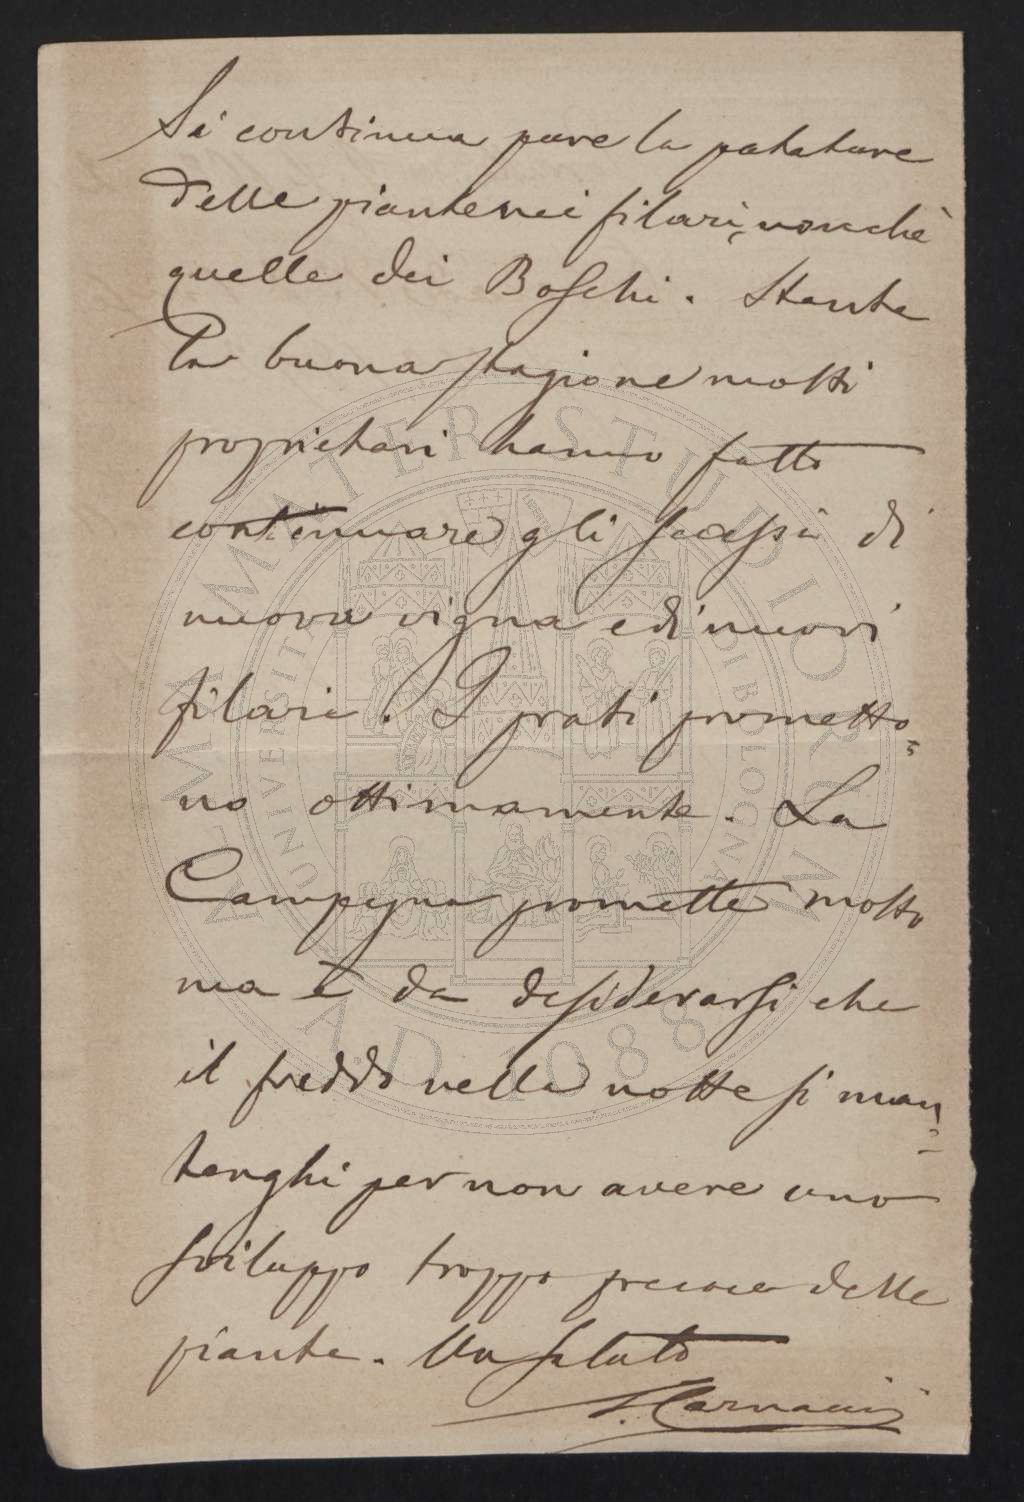 Si continua pure la potature
delle piante nei filari, nonchè
quelle dei Boschi. Stante
la buona stagione molti
proprietari hanno fatto
continuare gli scassi di
nuova vigna e di nuovi
filari. I prati prometto=
no ottimamente. La
Campagna promette molto
ma è da desiderarsi che
il freddo nella notte si man=
tenghi per non avere uno
sviluppo troppo precoce delle
piante. Un saluto
ALMA MATER STUDIORUM
UNIVERSITÀ DI BOLOGNA
A.D. 1088